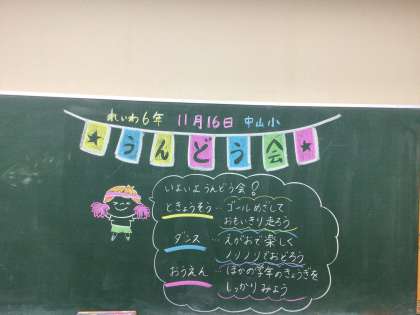 れいわ6年 11月16日 中山小
★うんどう会★
いよいようんどう会!
ときょうそう…ゴールめざして
おもいきり走ろう
ダンス…えがおで楽しく
ノリノリでおどろう
おうえん…ほかの学年のきょうぎを
しっかりみよう